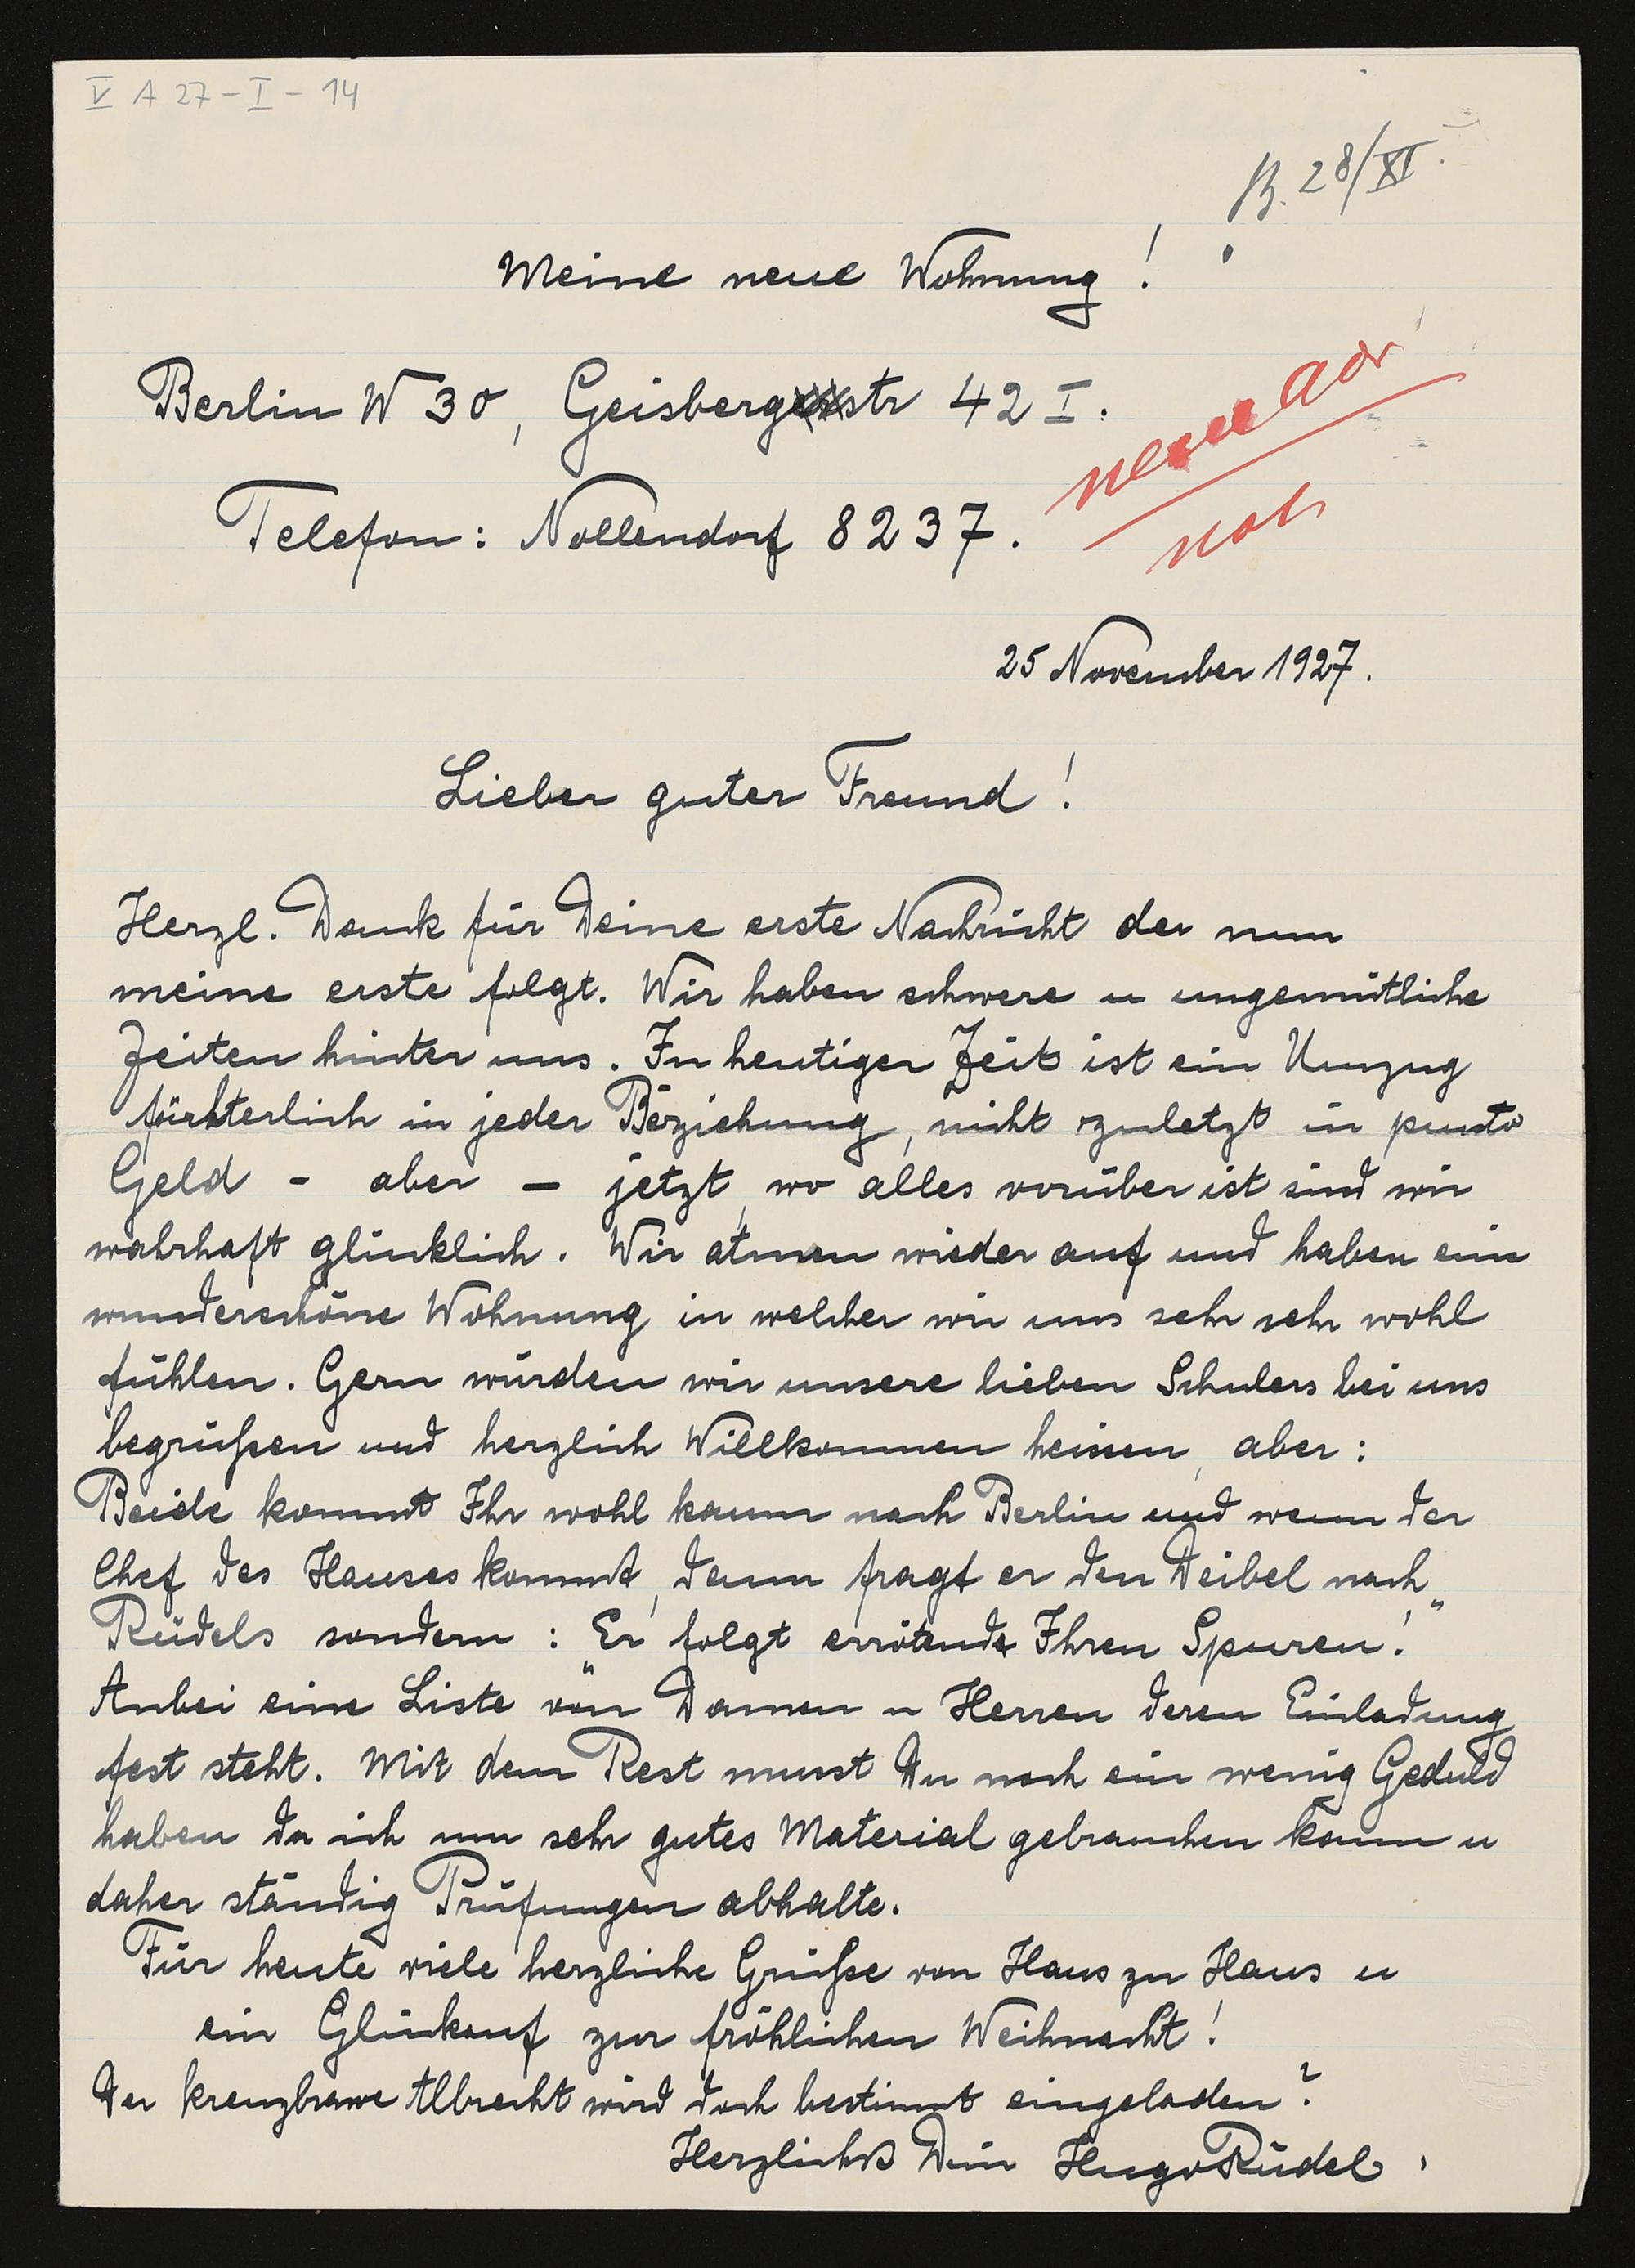 V A 27 - I - 14
B. 28/XI.
Meine neue Wohnung!
Berlin W 30, Geisbergstr 42 I.
neue Adr
Telefon: Nollendorf 8237.
not.
25 November 1927.
Lieber guter Freund!
Herzl. Dank für Deine erste Nachricht der nun
meine erste folgt. Wir haben schwere u ungemütliche
Zeiten hinter uns. In heutiger Zeit ist ein Umzug
fürchterlich in jeder Beziehung, nicht zuletzt in punto
Geld - aber - jetzt, wo alles vorüber ist sind wir
wahrhaft glücklich. Wir atmen wieder auf und haben eine
wunderschöne Wohnung in welcher wir uns sehr sehr wohl
fühlen. Gern würden wir unsere lieben Schulers bei uns
begrüßen und herzlich Willkommen heissen, aber:
Beide kommt Ihr wohl kaum nach Berlin und wenn der
Chef des Hauses kommt, dann fragt er den Deibel nach
Rüdels sondern: „Er folgt errötend Ihren Spuren!"
Anbei eine Liste von Damen u Herren deren Einladung
fest steht. Mit dem Rest musst Du noch ein wenig Geduld
haben da ich nur sehr gutes Material gebrauchen kann u
daher ständig Prüfungen abhalte.
Für heute viele herzliche Grüße von Haus zu Haus u
ein Glückauf zur fröhlichen Weihnacht!
Der kreuzbrave Albrecht wird doch bestimmt eingeladen?
Herzlichst Dein Hugo Rüdel.